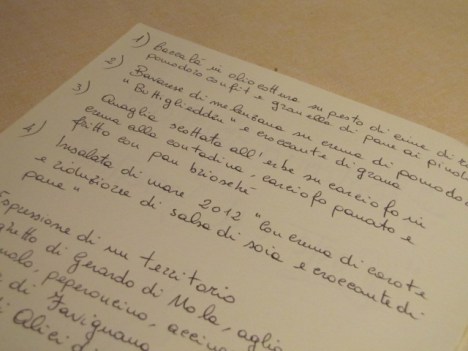 1) Baccalà in olio cottura su pesto di cime di
pomodoro confit e granella di pane ai pinoli
2) Bavarese di melanzana su crema di pomodoro
"Buttiglieddru" e croccante di grana
3) Quaglia scottata all'erbe su carciofo in
crema alla contadina, carciofo panato e
fritto con pan brioschè
4) Insalata di mare 2012 "con crema di carote
e riduzione di salsa di soia e croccante di
pane"
Espressione di un territorio
di Gerardo di Nola, aglio
peperoncino,
di Favignana
Alici